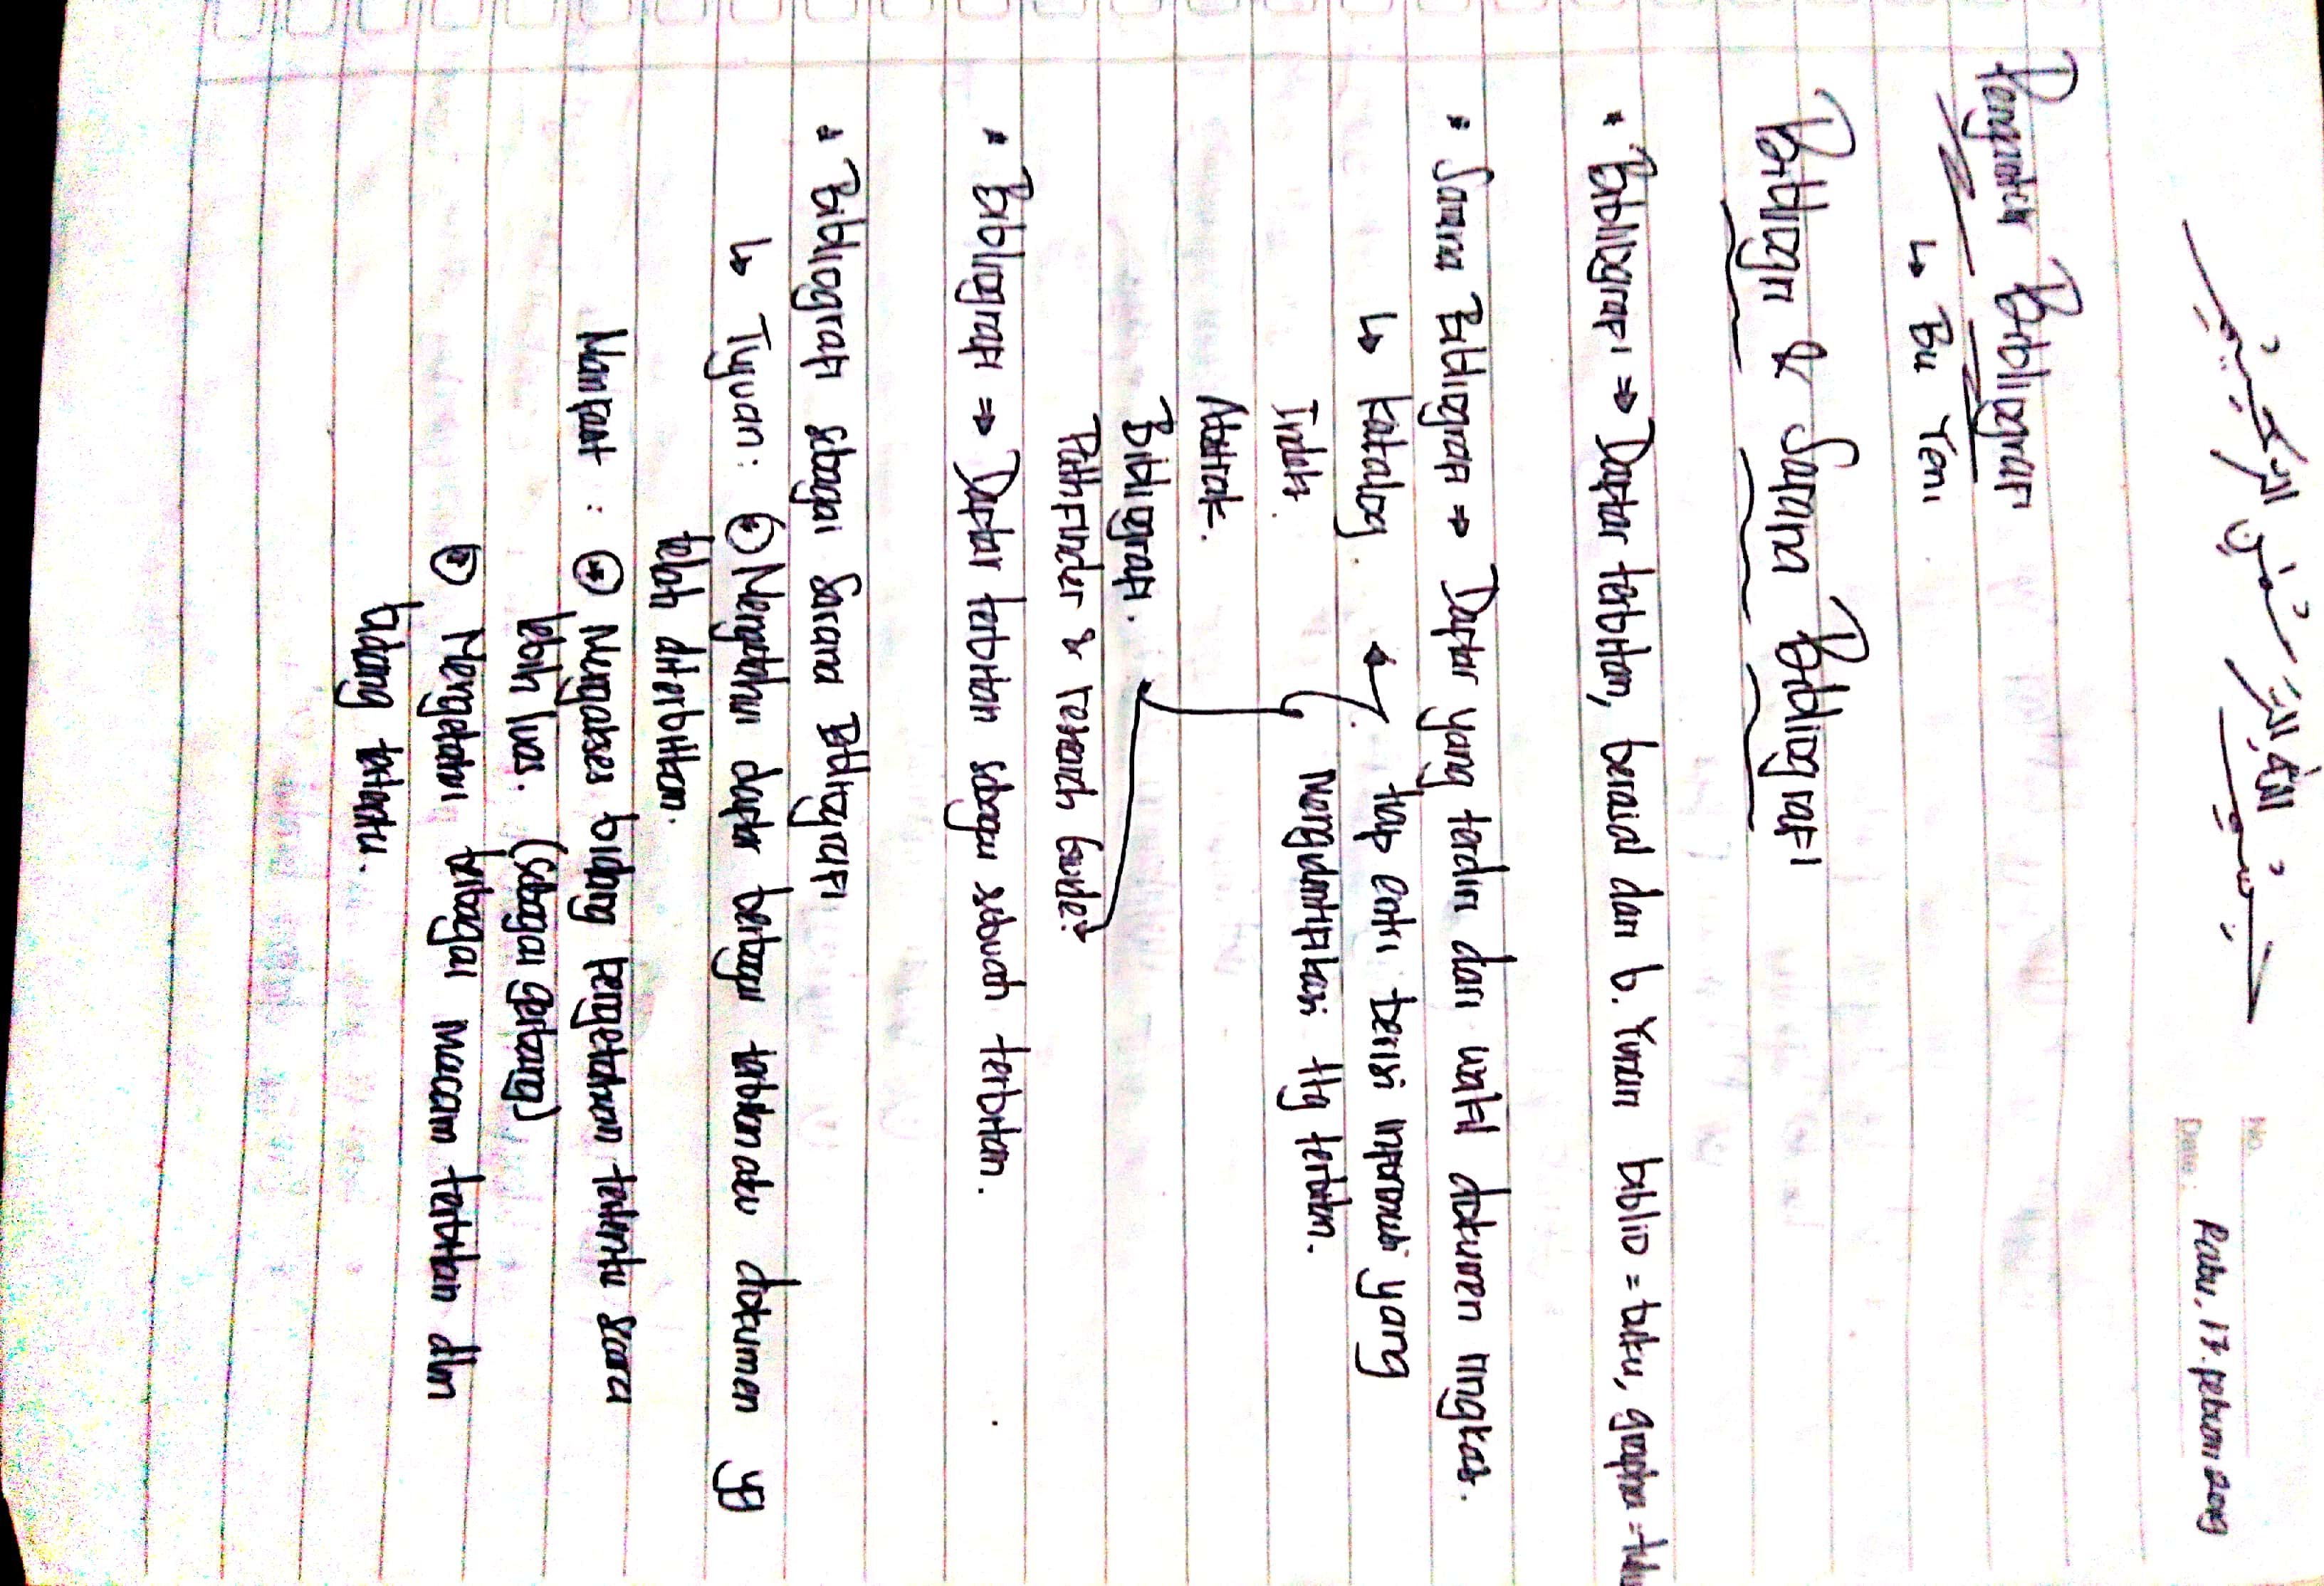 بسم الله الرحمن الرحيم
No.
Date: Rabu, 13. pebuari 2019
Pengantar Bibliografi
↳ Bu Yeni
Bibliografi & Sarana Bibliografi
• Bibliografi ⇒ Daftar terbitan, berasal dari b. Yunani biblio = buku, graphia =
• Sarana Bibliografi ⇒ Daftar yang terdiri dari wakil dokumen ringkas.
↳ katalog. tiap entri berisi informasi yang
Indeks. Mengidentifikasi ttg terbitan.
Abstrak.
Bibliografi.
Pathfinder & research Guide.
• Bibliografi ⇒ Daftar terbitan sbagai sebuah terbitan.
• Bibliografi sbagai sarana Bibliografi
↳ Tujuan: Mengetahui daftar berbagai terbitan atau dokumen yg
telah diterbitkan.
Manfaat : Mengakses bidang pengetahuan tertentu secara
lebih luas. (sbagai gerbang)
Mengetahui berbagai macam terbitan dlm
bidang tertentu.